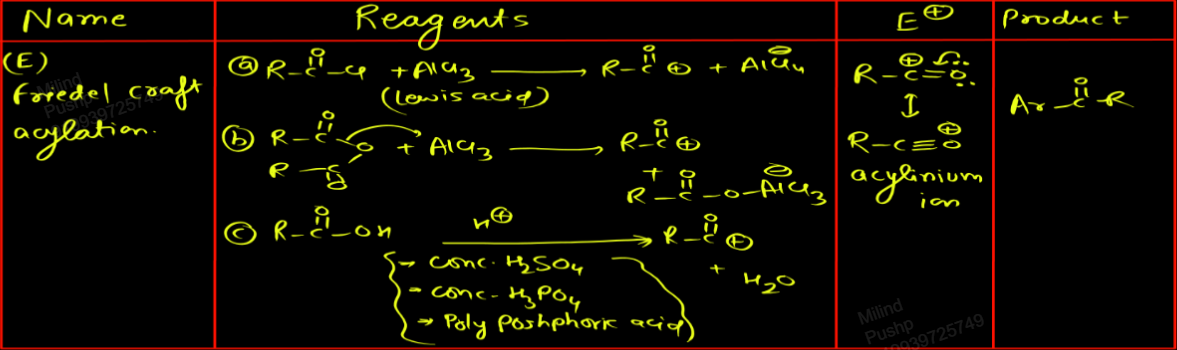 Name
Reagents
E⊕
Product
(E)
Friedel craft
acylation.
ⓐ R-C(=O)-Cl + AlCl3 ⟶ R-C(=O)⊕ + AlCl4⊖
(Lewis acid)
ⓑ R-C(=O)-O-C(=O)-R + AlCl3 ⟶ R-C(=O)⊕
+ R-C(=O)-O-AlCl3⊖
ⓒ R-C(=O)-OH H⊕ ⟶ R-C(=O)⊕
+ H2O
→ conc. H2SO4
→ conc- H3PO4
→ Poly poshphoric acid
R-C⊕=O:
↕
R-C≡O⊕
acylinium
ion
Ar-C(=O)-R
Milind
Pushp
9939725749
Milind
Pushp
9939725749